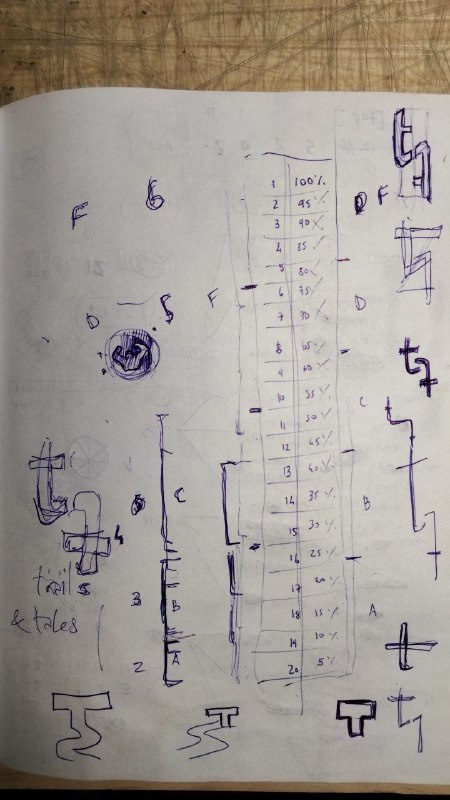 1 100%
2 95%
3 90%
4 85
5 80%
6 75%
7 70%
8 65%
9 60%
10 55%
11 50%
12 45%
13 40%
14 35%
15 30%
16 25%
17 20%
18 15%
19 10%
20 5%
F
D
C
B
A
F
6
D
5
F
C
4
3
B
2
A
trails
& tales